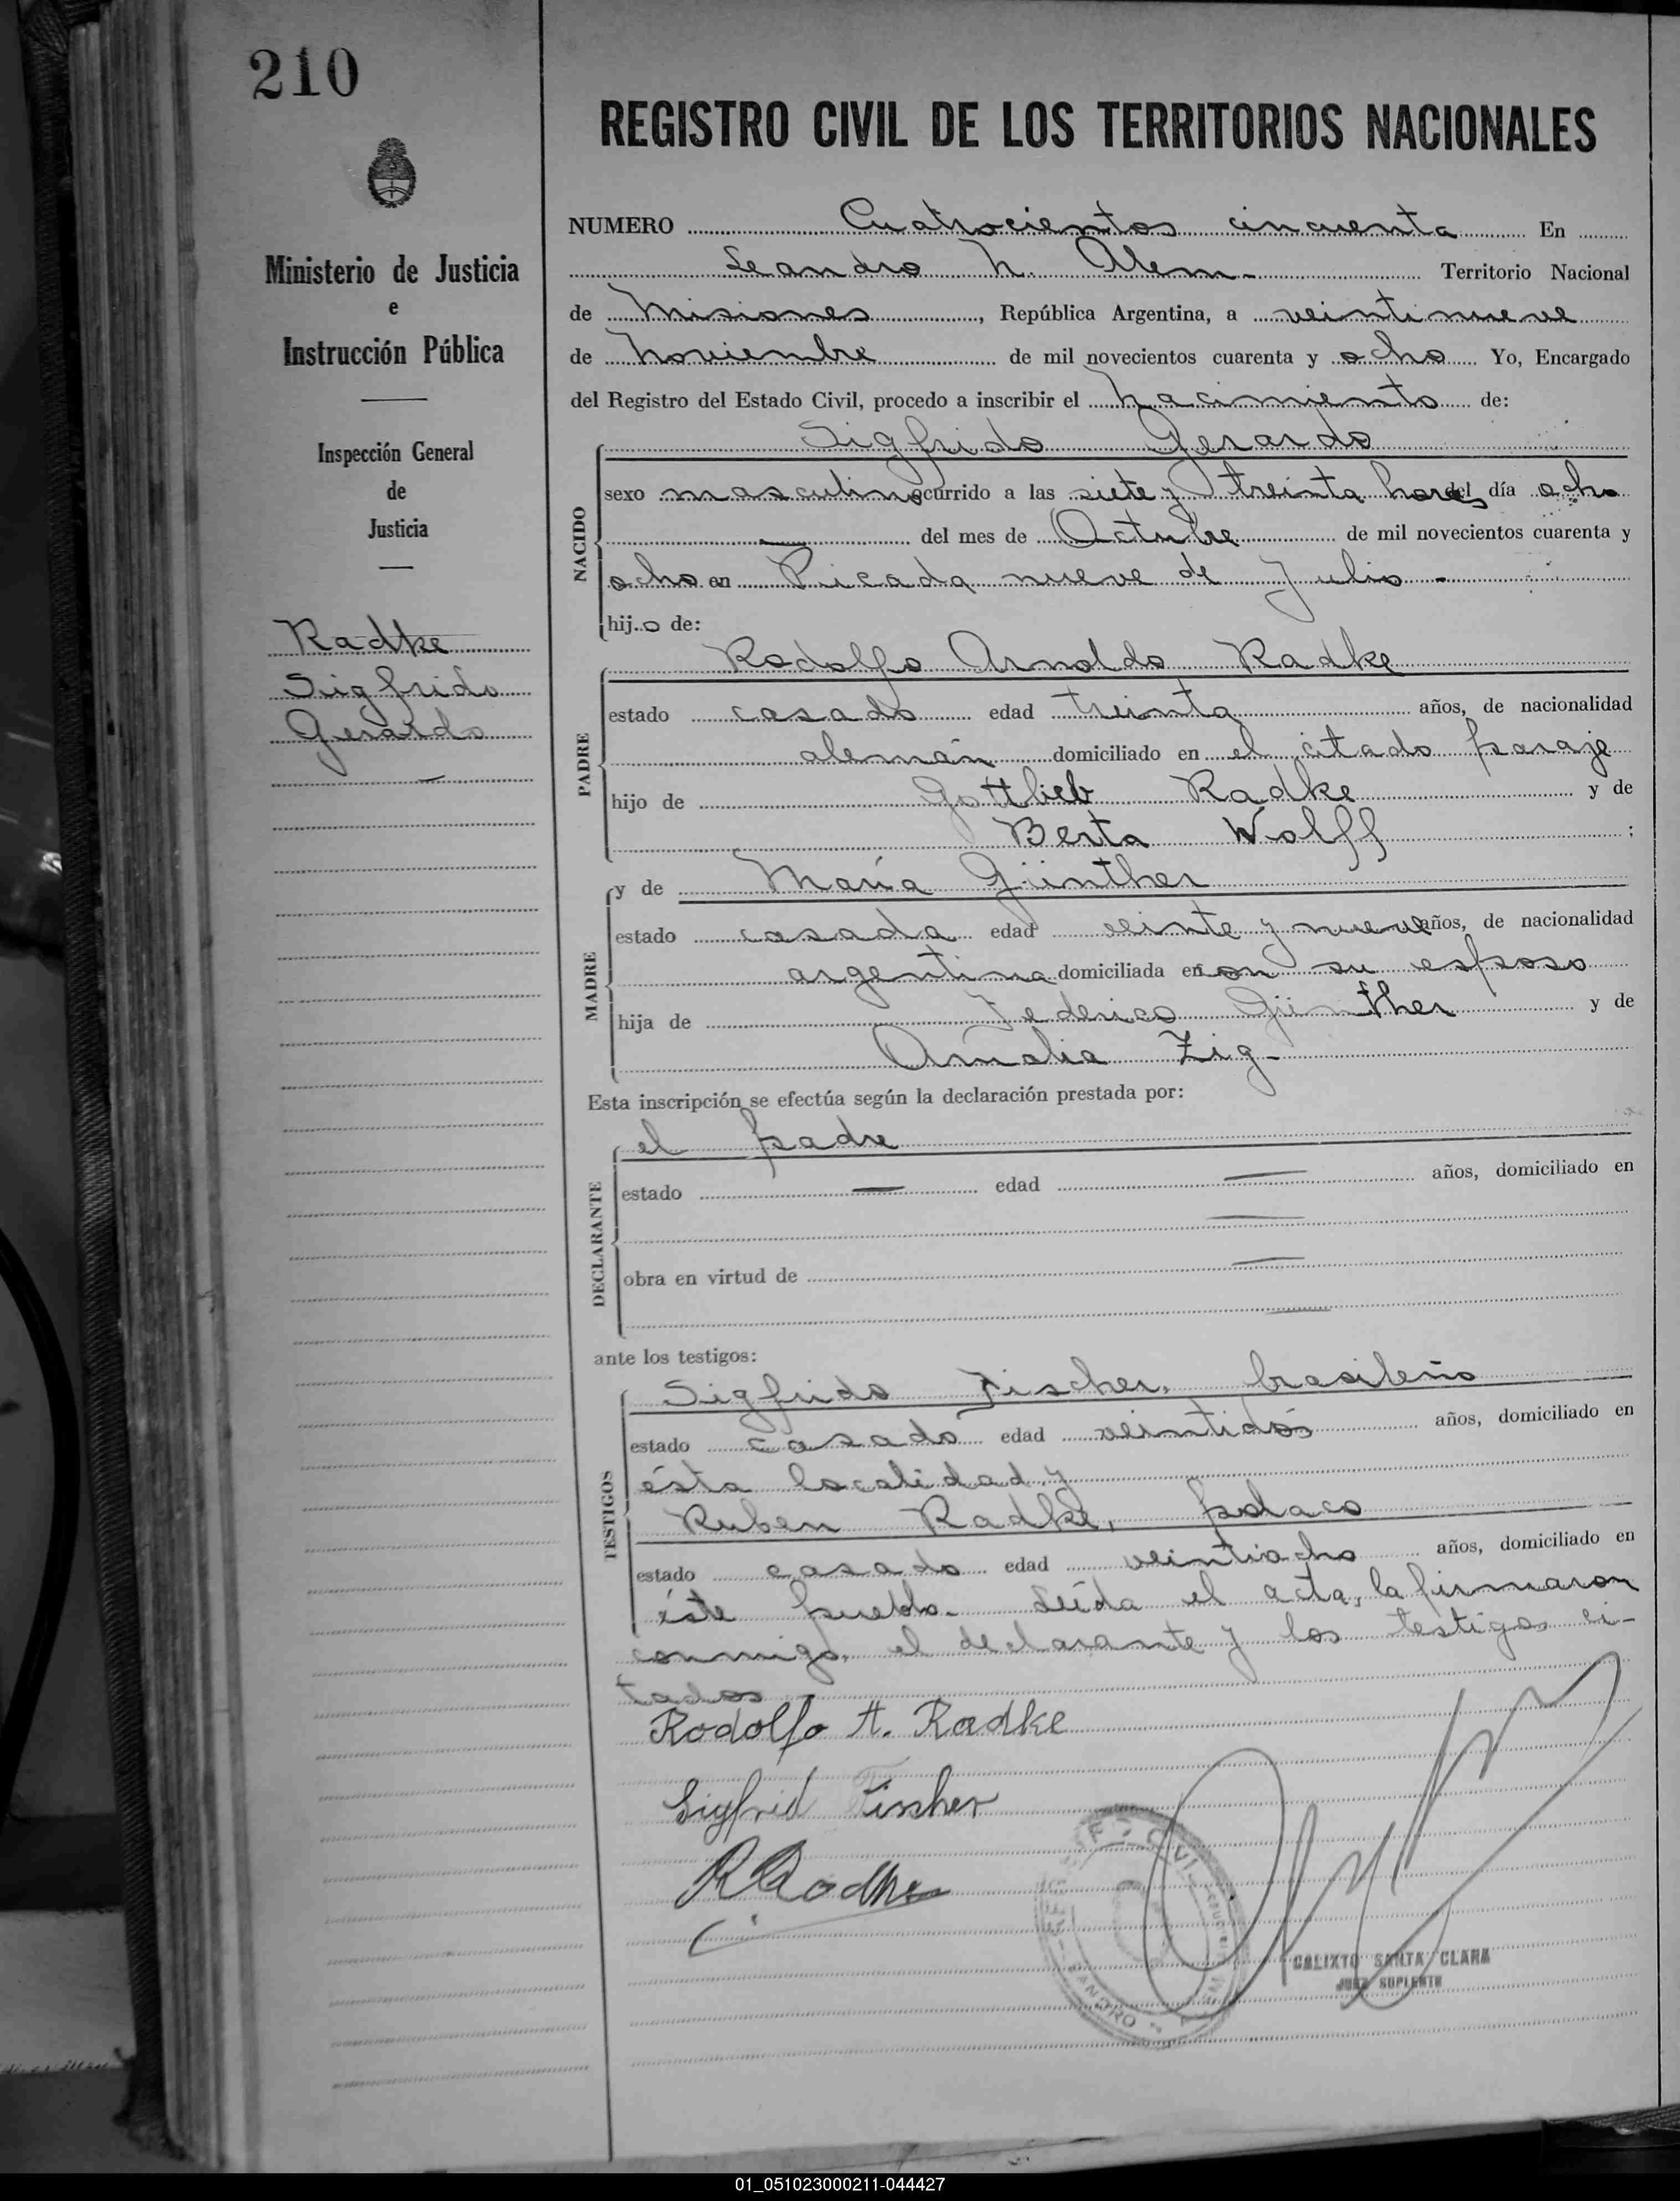 210
Ministerio de Justicia
e
Instrucción Pública
Inspección General
de
Justicia
Radke
Sigfrido
Gerardo
REGISTRO CIVIL DE LOS TERRITORIOS NACIONALES
NUMERO Cuatrocientos cincuenta En
Leandro N. Alem.- Territorio Nacional
de Misiones, República Argentina, a veintinueve
de Noviembre de mil novecientos cuarenta y ocho Yo, Encargado
del Registro del Estado Civil, procedo a inscribir el Nacimiento de:
Sigfrido Gerardo
NACIDO
sexo masculino ocurrido a las siete y treinta horas del día ocho
del mes de Octubre de mil novecientos cuarenta y
ocho en Picada nueve de Julio.-
hijo de:
Rodolfo Arnoldo Radke
PADRE
estado casado edad treinta años, de nacionalidad
alemán domiciliado en el citado paraje
hijo de Gottlieb Radke y de
Berta Wolff ;
y de María Günther
MADRE
estado casada edad veinte y nueve años, de nacionalidad
argentina domiciliada en con su esposo
hija de Federico Günther y de
Amalia Zig.-
Esta inscripción se efectúa según la declaración prestada por:
el padre
DECLARANTE
estado — edad — años, domiciliado en
obra en virtud de —
ante los testigos:
Sigfrido Fischer, brasileño
TESTIGOS
estado casado edad veintidós años, domiciliado en
ésta localidad y
Ruben Radke, polaco
estado casado edad veintiocho años, domiciliado en
éste pueblo.- Leída el acta, la firmaron
conmigo, el declarante y los testigos ci-
tados
Rodolfo A. Radke
Sigfrid Fischer
R Radke
CALIXTO SANTA CLARA
JUEZ SUPLENTE
01_051023000211-044427